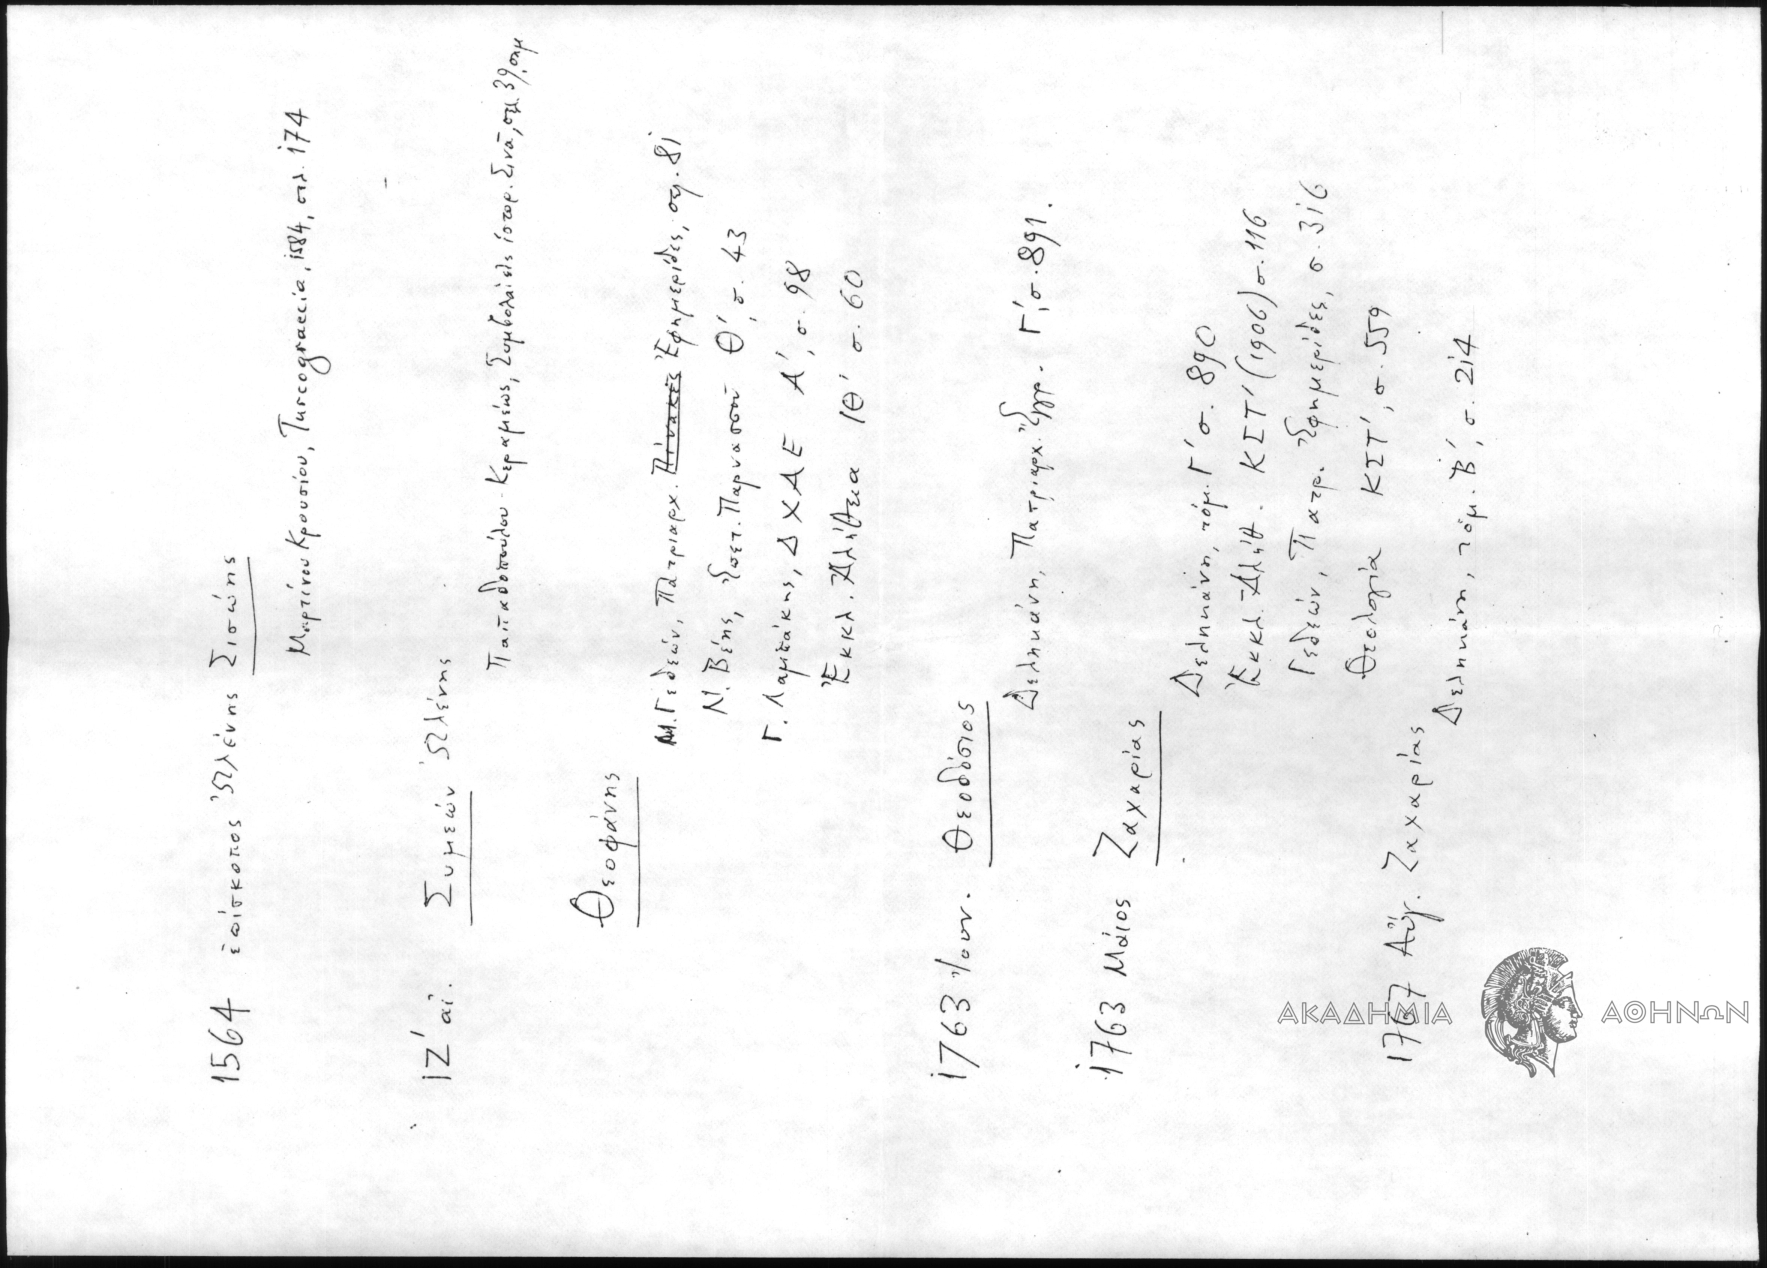 1564 ἐπίσκοπος Ὠλένης Σισώης
Μαρτίνου Κρουσίου, Turcograecia, 1584, σελ. 174
ΙΖ΄ αἰ. Συμεών Ὠλένης
Παπαδοπούλου-Κεραμέως, Συμβολαί εἰς ἱστορ. Σινᾶ, σελ. 39, σημ
Θεοφάνης
Μ. Γεδεών, Πατριαρχ. Πίνακες Ἐφημερίδες, σελ. 81
Ν. Βέης, Ἐπετ. Παρνασσοῦ Θ΄, σ. 43
Γ. Λαμπάκης, ΔΧΑΕ Α΄, σ. 98
Ἐκκλ. Ἀλήθεια ΙΘ΄ σ. 60
1763 Ἰουν. Θεοδόσιος
Δεληκάνη, Πατριαρχ. Ἔγγρ. Γ΄, σ. 891.
1763 Μάιος Ζαχαρίας
Δεληκάνη, τόμ. Γ΄ σ. 890
Ἐκκλ. Ἀλήθ. ΚΣΤ΄ (1906) σ. 116
Γεδεών, Πατρ. Ἐφημερίδες, σ. 316
Θεολογία ΚΣΤ΄, σ. 559
1767 Αὔγ. Ζαχαρίας
Δεληκάνη, τόμ. Β΄, σ. 214
ΑΚΑΔΗΜΙΑ ΑΘΗΝΩΝ